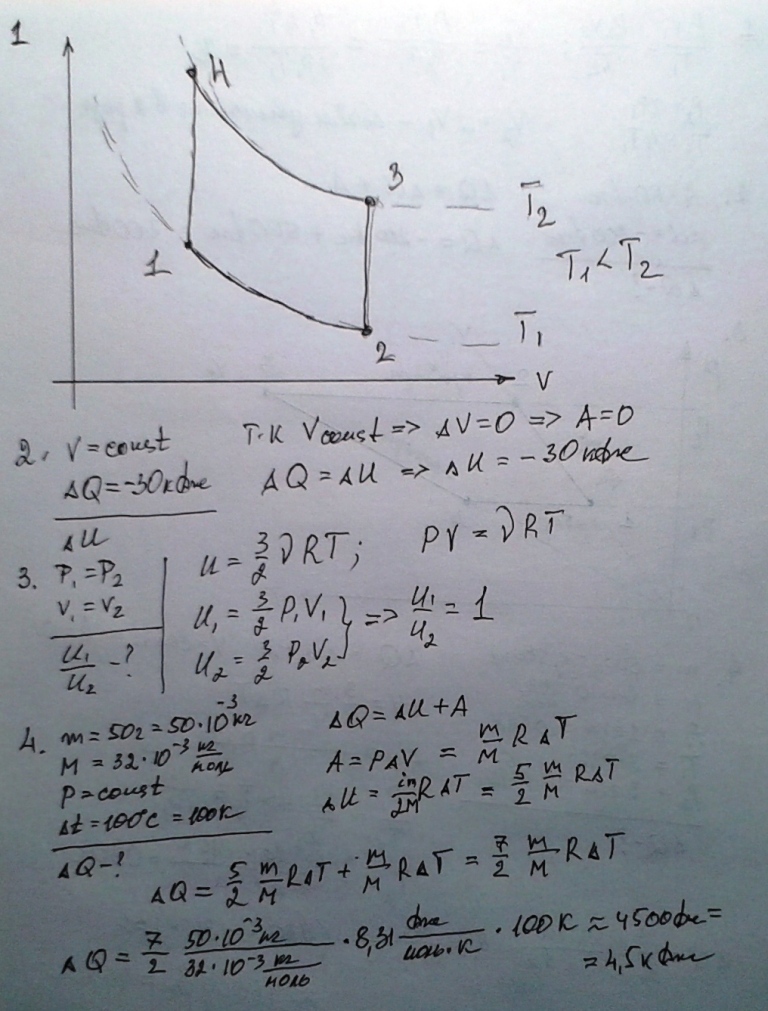 1
4
3
T₂
1
T₁ < T₂
2
T₁
V
2. V = const
ΔQ = -30 кДж
ΔU
Т.к Vconst => ΔV = 0 => A = 0
ΔQ = ΔU => ΔU = -30 кДж
3. P₁ = P₂
V₁ = V₂
U₁/U₂ - ?
U = 3/2 νRT; PV = νRT
U₁ = 3/2 P₁V₁
U₂ = 3/2 P₂V₂ } => U₁/U₂ = 1
4. m = 50г = 50·10⁻³ кг
M = 32·10⁻³ кг/моль
P = const
Δt = 100°C = 100K
ΔQ - ?
ΔQ = ΔU + A
A = PΔV = m/M RΔT
ΔU = im/2M RΔT = 5/2 m/M RΔT
ΔQ = 5/2 m/M RΔT + m/M RΔT = 7/2 m/M RΔT
ΔQ = 7/2 50·10⁻³кг/32·10⁻³ кг/моль · 8,31 Дж/моль·К · 100K ≈ 4500 Дж =
= 4,5 кДж